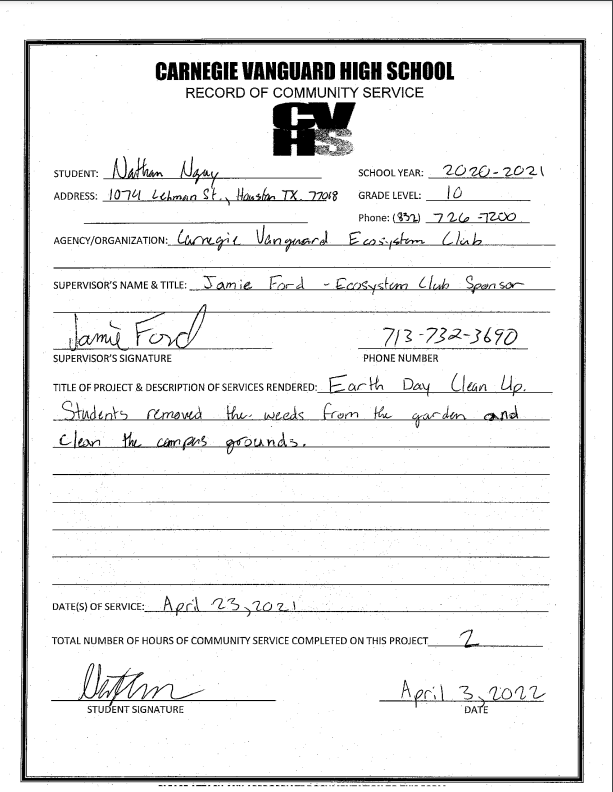 CARNEGIE VANGUARD HIGH SCHOOL
RECORD OF COMMUNITY SERVICE
CV
HS
STUDENT: Nathan Nguy SCHOOL YEAR: 2020-2021
ADDRESS: 1074 Lehman St., Houston TX. 77018 GRADE LEVEL: 10
Phone: (832) 726-7200
AGENCY/ORGANIZATION: Carnegie Vanguard Ecosystem Club
SUPERVISOR'S NAME & TITLE: Jamie Ford - Ecosystem Club Sponsor
Jamie Ford 713-732-3690
SUPERVISOR'S SIGNATURE PHONE NUMBER
TITLE OF PROJECT & DESCRIPTION OF SERVICES RENDERED: Earth Day Clean Up.
Students removed the weeds from the garden and
clean the campus grounds.
DATE(S) OF SERVICE: April 23, 2021
TOTAL NUMBER OF HOURS OF COMMUNITY SERVICE COMPLETED ON THIS PROJECT 2
Nathan April 3, 2022
STUDENT SIGNATURE DATE